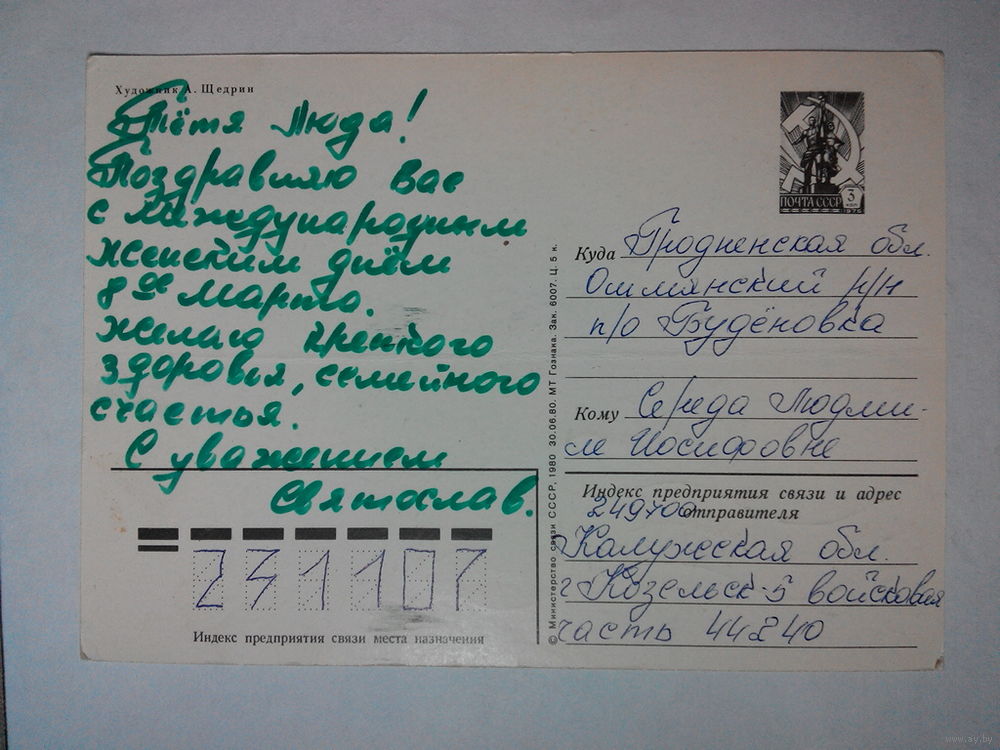 Художник А. Щедрин
Тётя Люда!
Поздравляю Вас
с Международным
женским днём
8ое Марта.
желаю крепкого
здоровья, семейного
счастья.
С уважением
Святослав.
231107
Индекс предприятия связи места назначения
© Министерство связи СССР, 1980 30.06.80. МТ Гознака. Зак. 6007. Ц. 5 к.
ПОЧТА СССР 3 КОП 1976
Куда Гродненская обл.
Ошмянский р/н
п/о Будёновка
Кому Середа Людми-
ле Иосифовне
Индекс предприятия связи и адрес
отправителя
249700
Калужская обл.
г Козельск-5 войсковая
часть 44240
www.ay.by